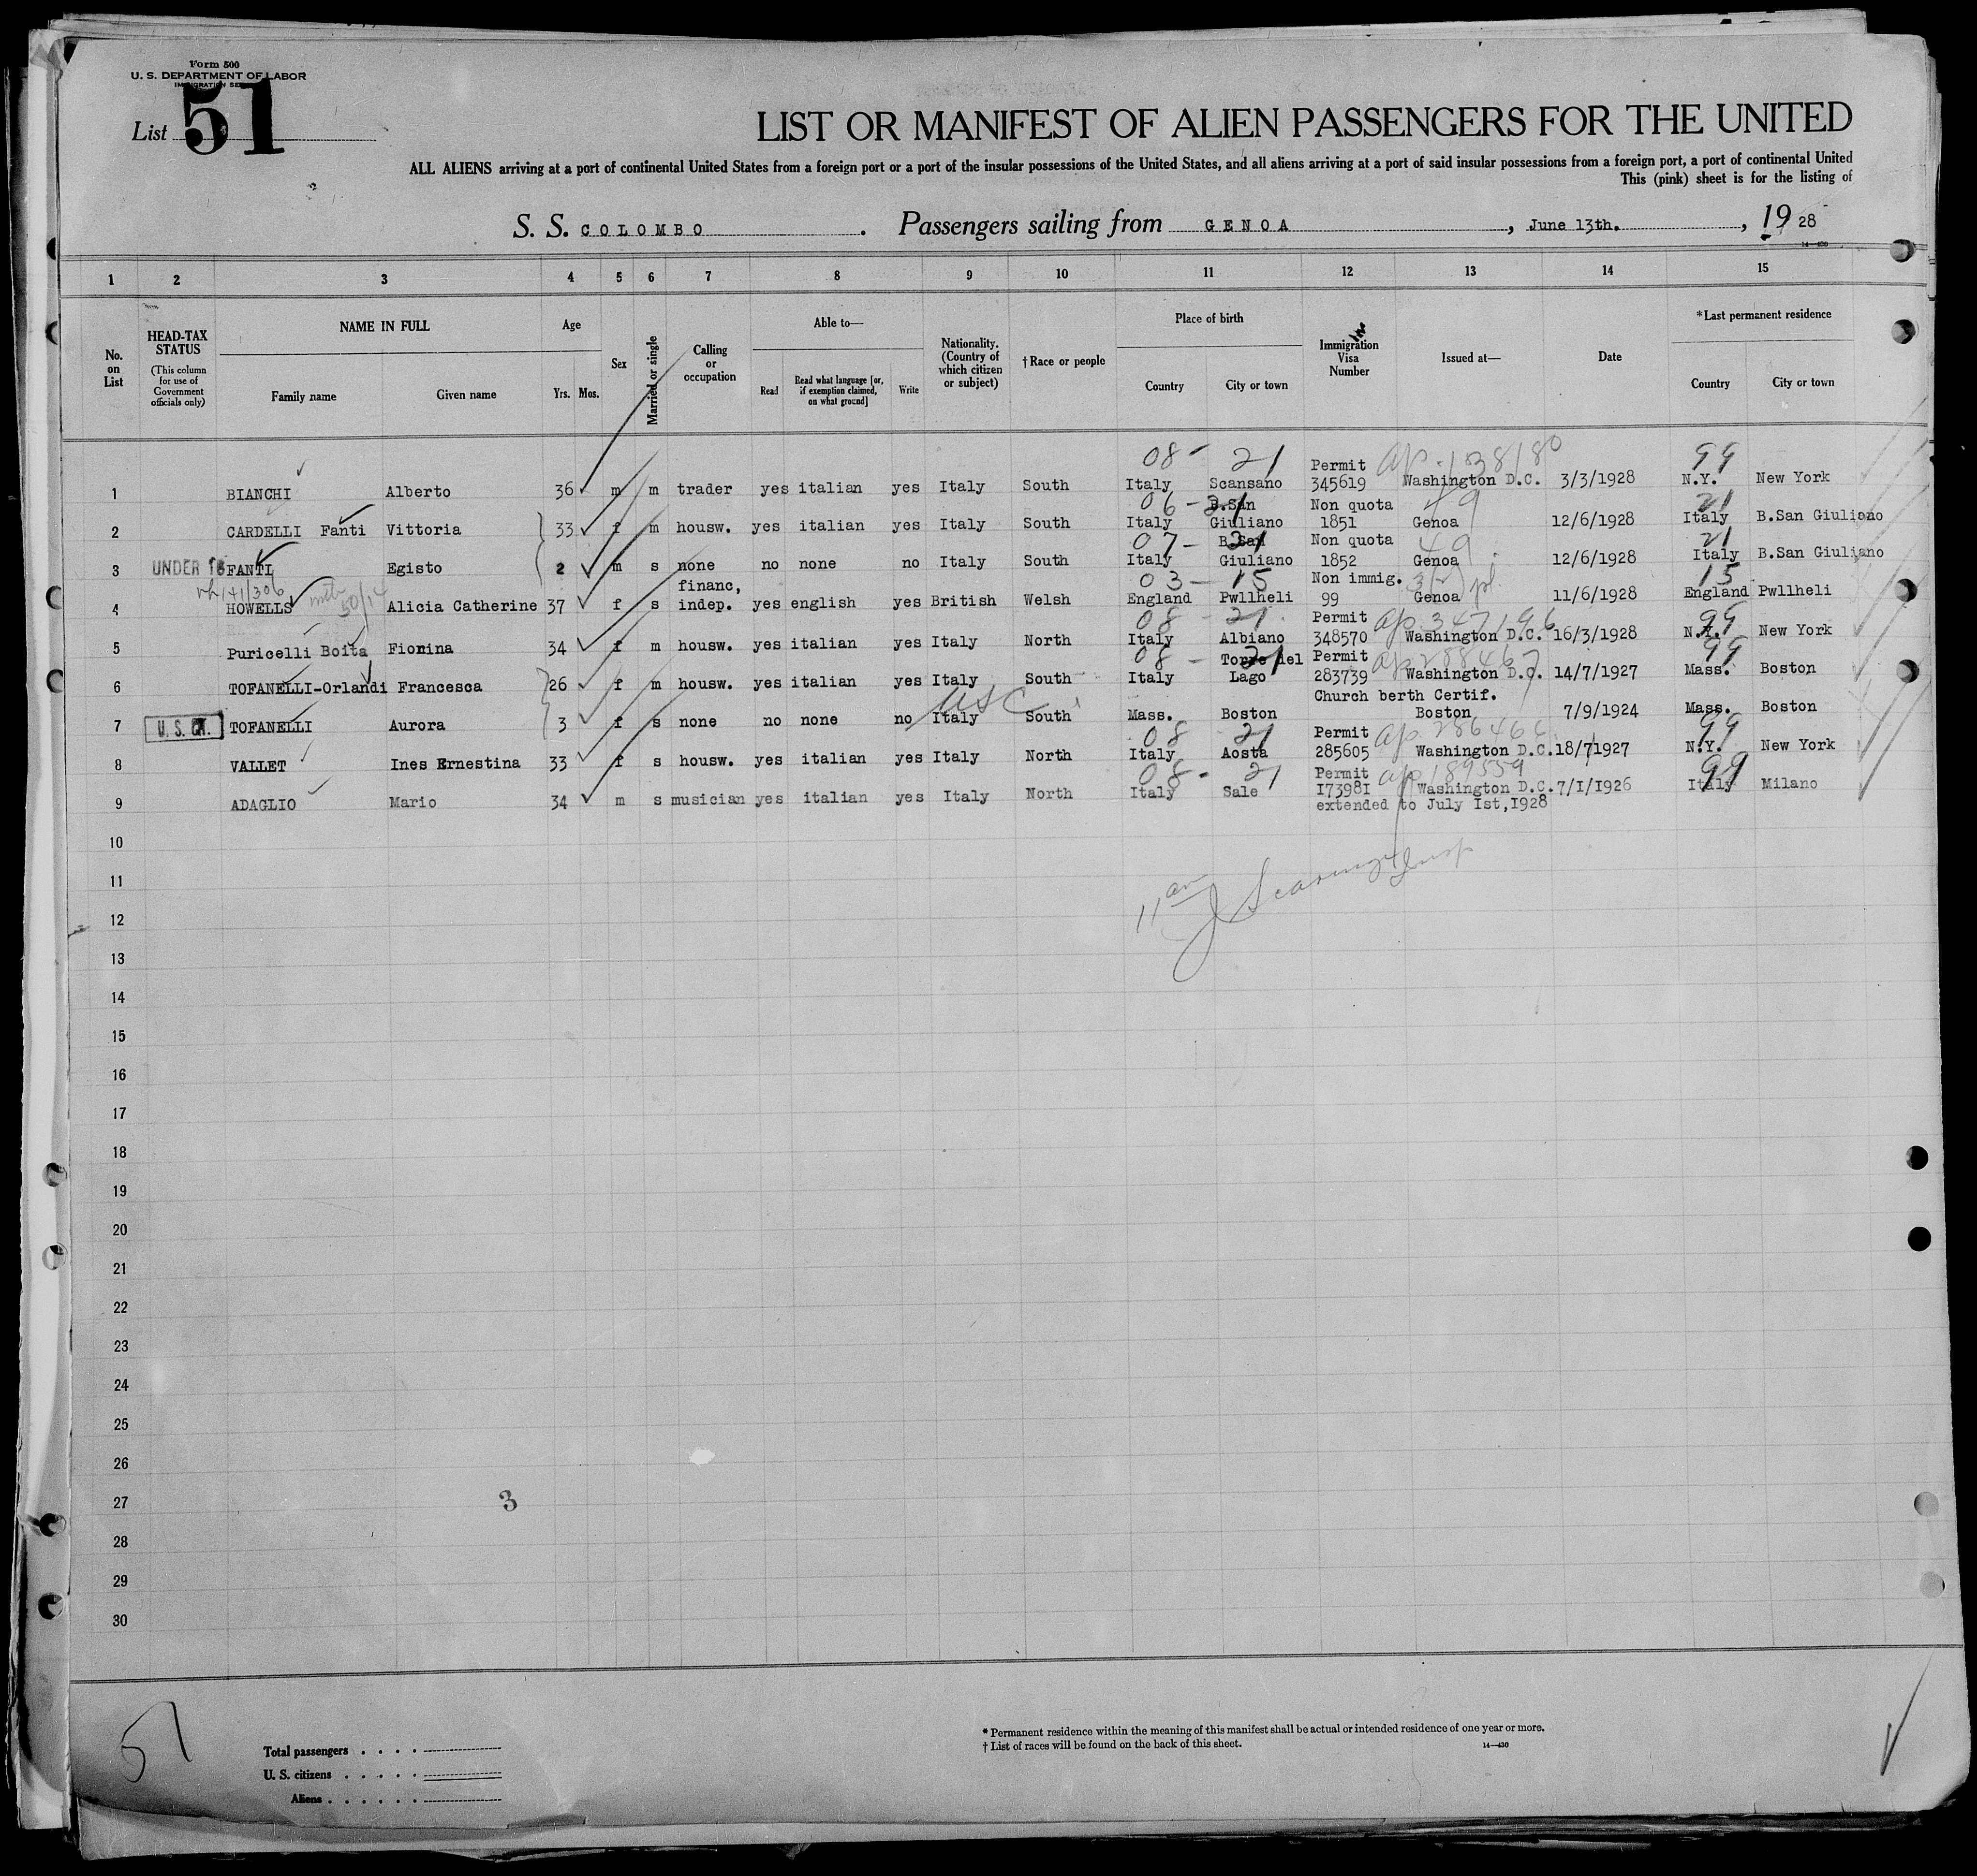 Form 500
U. S. DEPARTMENT OF LABOR
List 51
LIST OR MANIFEST OF ALIEN PASSENGERS FOR THE UNITED
ALL ALIENS arriving at a port of continental United States from a foreign port or a port of the insular possessions of the United States, and all aliens arriving at a port of said insular possessions from a foreign port, a port of continental United
This (pink) sheet is for the listing of
S. S. COLOMBO. Passengers sailing from GENOA, June 13th., 19 28
14—430
1 2 3 4 5 6 7 8 9 10 11 12 13 14 15
No. on List
HEAD-TAX STATUS (This column for use of Government officials only)
NAME IN FULL Family name Given name
Age Yrs. Mos.
Sex
Married or single
Calling or occupation
Able to— Read Read what language [or, if exemption claimed, on what ground] Write
Nationality. (Country of which citizen or subject)
†Race or people
Place of birth Country City or town
Immigration Visa Number
Issued at—
Date
*Last permanent residence Country City or town
08 - 21 Permit ap. 138180 99
1 BIANCHI Alberto 36 m m trader yes italian yes Italy South Italy Scansano 345619 Washington D.C. 3/3/1928 N.Y. New York
06 - 21 B.San Non quota 49 21
2 CARDELLI Fanti Vittoria 33 f m housw. yes italian yes Italy South Italy Giuliano 1851 Genoa 12/6/1928 Italy B.San Giuliano
07 - 21 B.San Non quota 49 21
3 UNDER 16 FANTI Egisto 2 m s none no none no Italy South Italy Giuliano 1852 Genoa 12/6/1928 Italy B.San Giuliano
financ, 03 - 15 Non immig. 15
4 HOWELLS Alicia Catherine 37 f s indep. yes english yes British Welsh England Pwllheli 99 Genoa 11/6/1928 England Pwllheli
08 - 21 Permit ap 347196 99
5 Puricelli Boita Fionina 34 f m housw. yes italian yes Italy North Italy Albiano 348570 Washington D.C. 16/3/1928 N.Y. New York
08 - 21 Torre del Permit 99
6 TOFANELLI-Orlandi Francesca 26 f m housw. yes italian yes Italy South Italy Lago 283739 Washington D.C. 14/7/1927 Mass. Boston
USC Church berth Certif.
7 U. S. TOFANELLI Aurora 3 f s none no none no Italy South Mass. Boston Boston 7/9/1924 Mass. Boston
08 21 Permit 99
8 VALLET Ines Ernestina 33 f s housw. yes italian yes Italy North Italy Aosta 285605 Washington D.C. 18/7/1927 N.Y. New York
08 - 21 Permit ap 189559 99
9 ADAGLIO Mario 34 m s musician yes italian yes Italy North Italy Sale 173981 Washington D.C. 7/1/1926 Italy Milano
extended to July 1st,1928
10
11
11 am
12
13
14
15
16
17
18
19
20
21
22
23
24
25
26
27
3
28
29
30
51
Total passengers . . . .
U. S. citizens . . . . .
Aliens . . . . . .
* Permanent residence within the meaning of this manifest shall be actual or intended residence of one year or more.
† List of races will be found on the back of this sheet.
14—430